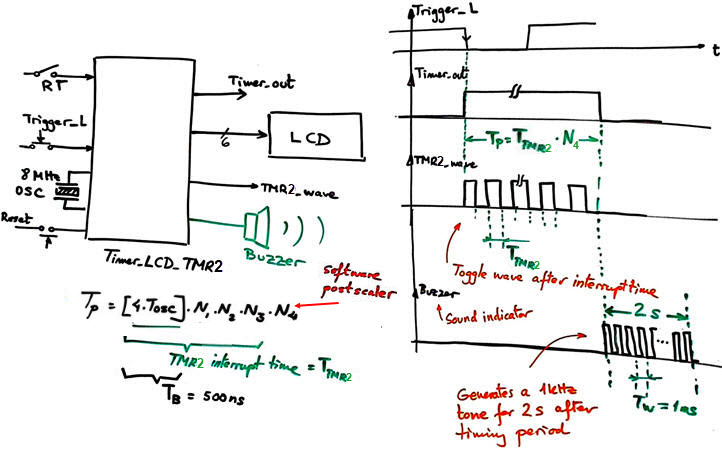 RT
Trigger_L
8 MHz
OSC
Reset
Timer_out
6
LCD
TMR2_wave
Buzzer
Timer_LCD_TMR2
Tp = [4.Tosc] . N1 . N2 . N3 . N4
software
postscaler
TMR2 interrupt time = T_TMR2
T_B = 500ns
Trigger_L
t
Timer_out
Tp = T_TMR2 . N4
TMR2_wave
T_TMR2
Toggle wave after interrupt time
Buzzer
Sound indicator
2 s
Generates a 1kHz
tone for 2 s after
timing period
Tw = 1ms